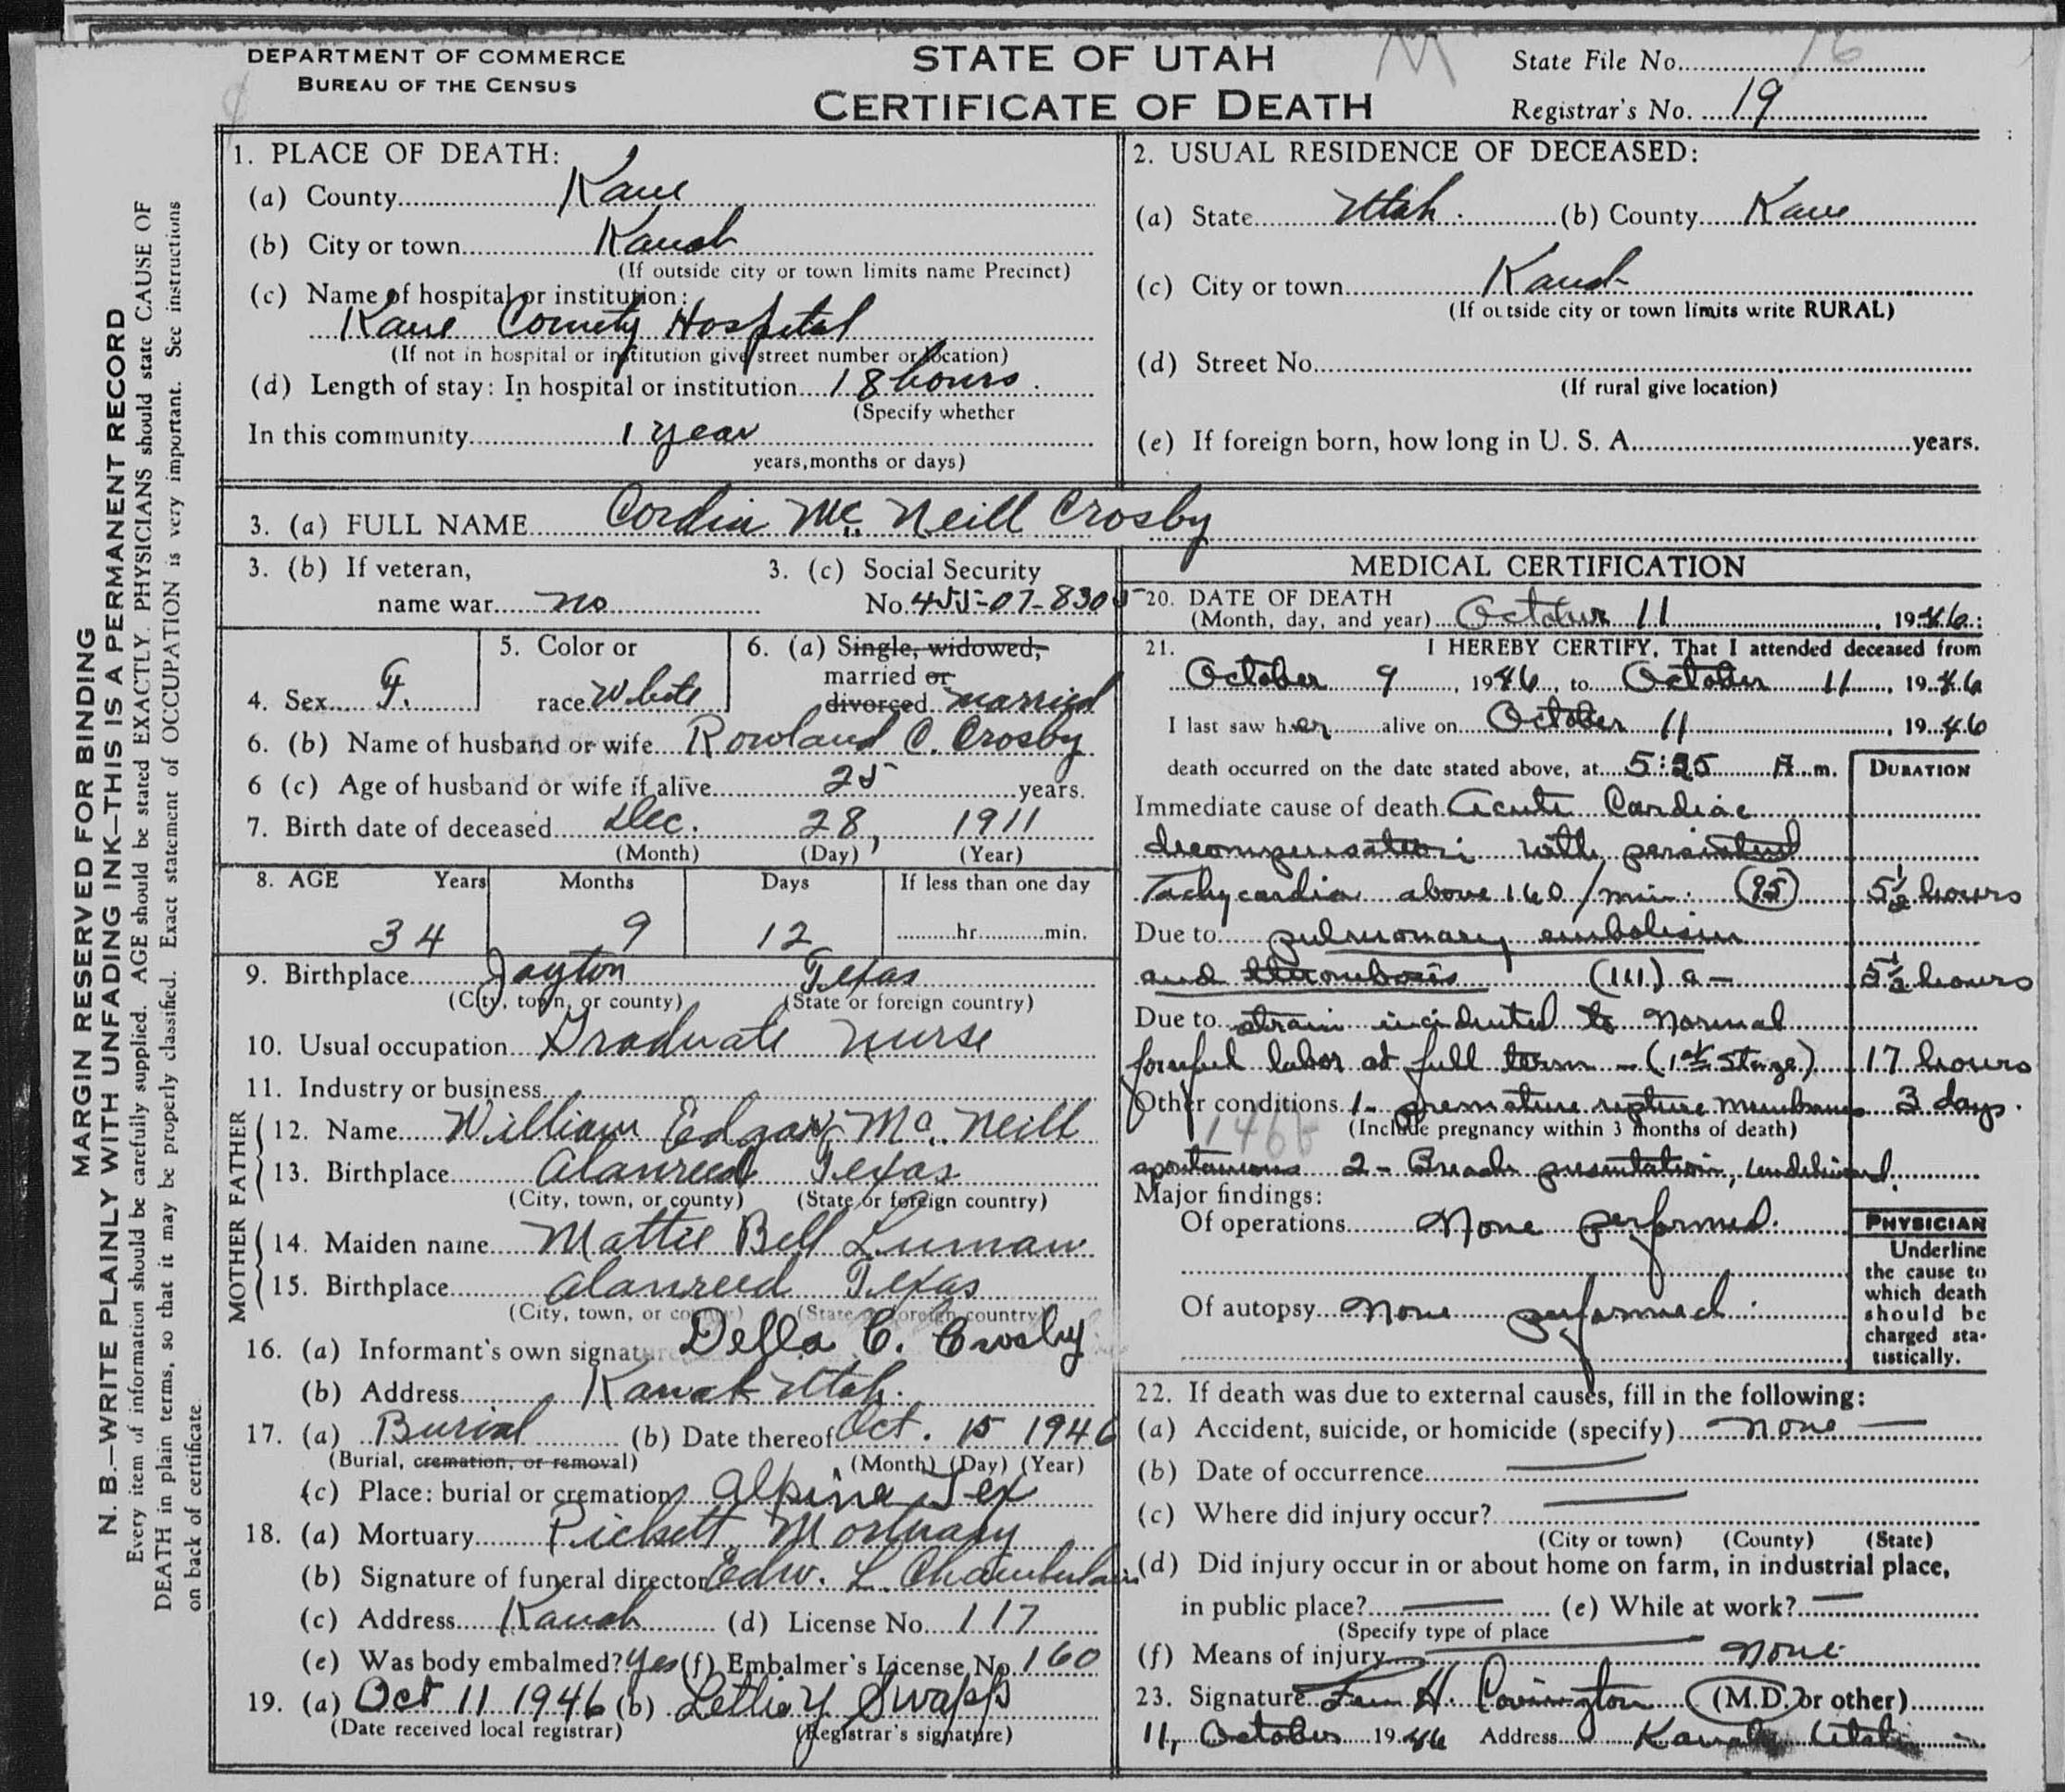 DEPARTMENT OF COMMERCE
BUREAU OF THE CENSUS
STATE OF UTAH
CERTIFICATE OF DEATH
State File No. 16
Registrar's No. 19
MARGIN RESERVED FOR BINDING
N. B.—WRITE PLAINLY WITH UNFADING INK—THIS IS A PERMANENT RECORD
Every item of information should be carefully supplied. AGE should be stated EXACTLY. PHYSICIANS should state CAUSE OF
DEATH in plain terms, so that it may be properly classified. Exact statement of OCCUPATION is very important. See instructions
on back of certificate.
1. PLACE OF DEATH:
(a) County Kane
(b) City or town Kanab
(If outside city or town limits name Precinct)
(c) Name of hospital or institution:
Kane County Hospital
(If not in hospital or institution give street number or location)
(d) Length of stay: In hospital or institution 18 hours
(Specify whether
In this community 1 year
years, months or days)
2. USUAL RESIDENCE OF DECEASED:
(a) State Utah (b) County Kane
(c) City or town Kanab
(If outside city or town limits write RURAL)
(d) Street No.
(If rural give location)
(e) If foreign born, how long in U. S. A. years.
3. (a) FULL NAME Cordia McNeill Crosby
3. (b) If veteran,
name war no
3. (c) Social Security
No. 455-07-8305
4. Sex F.
5. Color or
race White
6. (a) Single, widowed,
married or
divorced married
6. (b) Name of husband or wife Rowland C. Crosby
6 (c) Age of husband or wife if alive 25 years.
7. Birth date of deceased Dec. 28, 1911
(Month) (Day) (Year)
8. AGE Years Months Days If less than one day
34 9 12 hr. min.
9. Birthplace Jayton Texas
(City, town, or county) (State or foreign country)
10. Usual occupation Graduate Nurse
11. Industry or business
FATHER
12. Name William Edgar McNeill
13. Birthplace Alanreed Texas
(City, town, or county) (State or foreign country)
MOTHER
14. Maiden name Mattie Bell Luman
15. Birthplace Alanreed Texas
(City, town, or county) (State or foreign country)
16. (a) Informant's own signature Della C. Crosby
(b) Address Kanab Utah.
17. (a) Burial (b) Date thereof Oct. 15 1946
(Burial, cremation, or removal) (Month) (Day) (Year)
(c) Place: burial or cremation Alpine Tex
18. (a) Mortuary Pickett Mortuary
(b) Signature of funeral director Edw. L. Chamberlain
(c) Address Kanab (d) License No. 117
(e) Was body embalmed? Yes (f) Embalmer's License No. 160
19. (a) Oct 11 1946 (b) Lettie Y Swapp
(Date received local registrar) (Registrar's signature)
MEDICAL CERTIFICATION
20. DATE OF DEATH
(Month, day, and year) October 11, 1946
21. I HEREBY CERTIFY, That I attended deceased from
October 9, 1946, to October 11, 1946
I last saw her alive on October 11, 1946
death occurred on the date stated above, at 5:25 A. m.
DURATION
Immediate cause of death Acute Cardiac
decompensation with persistent
Tachycardia above 160/min. (95) 5½ hours
Due to pulmonary embolism
and thrombosis (111) a - 5½ hours
Due to strain incidented to normal
forceful labor at full term - (1st Stage) 17 hours
Other conditions 1- premature rupture membranes 3 days.
146b
(Include pregnancy within 3 months of death)
spontaneous 2 - Breach presentation, undelivered.
Major findings:
Of operations None performed.
Of autopsy None performed.
PHYSICIAN
Underline
the cause to
which death
should be
charged sta-
tistically.
22. If death was due to external causes, fill in the following:
(a) Accident, suicide, or homicide (specify) none
(b) Date of occurrence
(c) Where did injury occur?
(City or town) (County) (State)
(d) Did injury occur in or about home on farm, in industrial place,
in public place? (e) While at work?
(Specify type of place
(f) Means of injury none
23. Signature H. Covington (M.D. or other)
11, October 1946 Address Kanab Utah